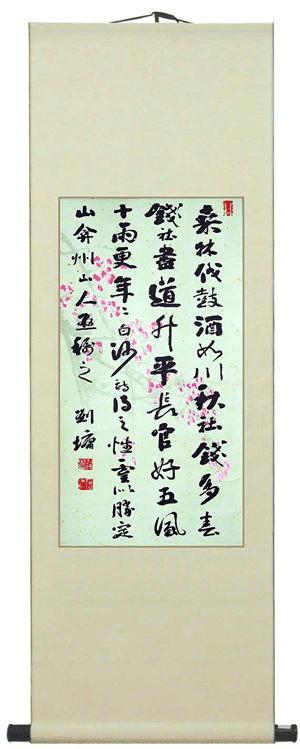 桑林伐鼓酒如川秋社錢多春
錢社盡道升平長官好五風
十雨更年〻白沙詩得之性靈以勝定
山弇州山人亟稱之 劉墉